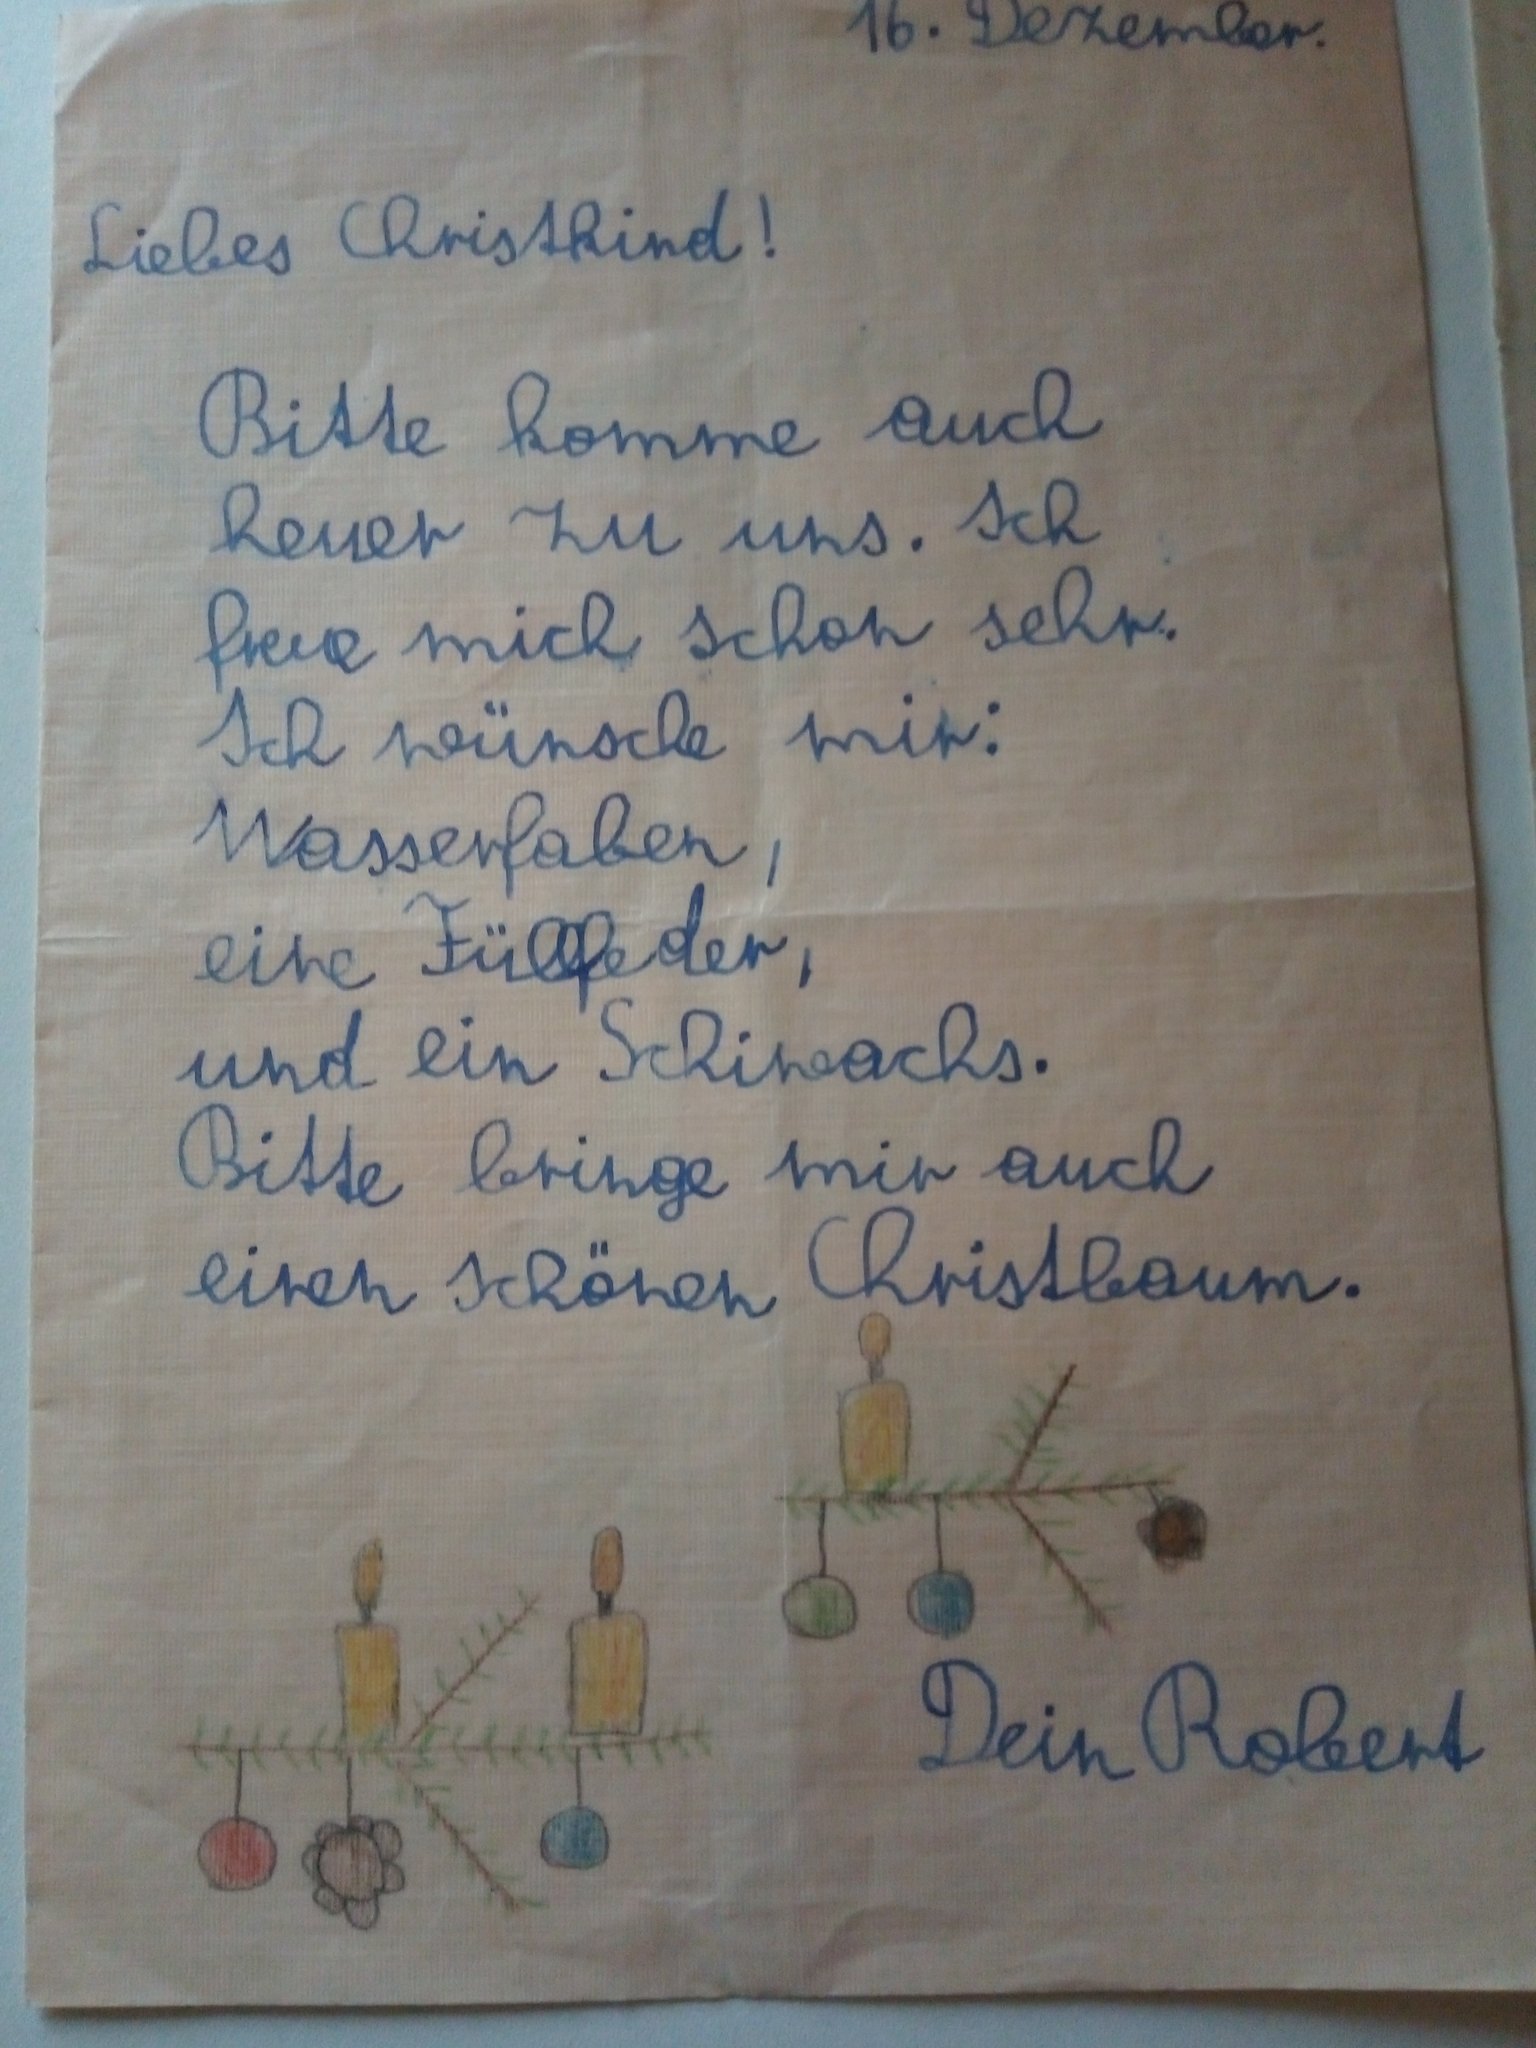 16. Dezember.
Liebes Christkind!
Bitte komme auch
heuer zu uns. Ich
freue mich schon sehr.
Ich wünsche mir:
Wasserfaben,
eine Füllfeder,
und ein Schiwachs.
Bitte bringe mir auch
einen schönen Christbaum.
Dein Robert